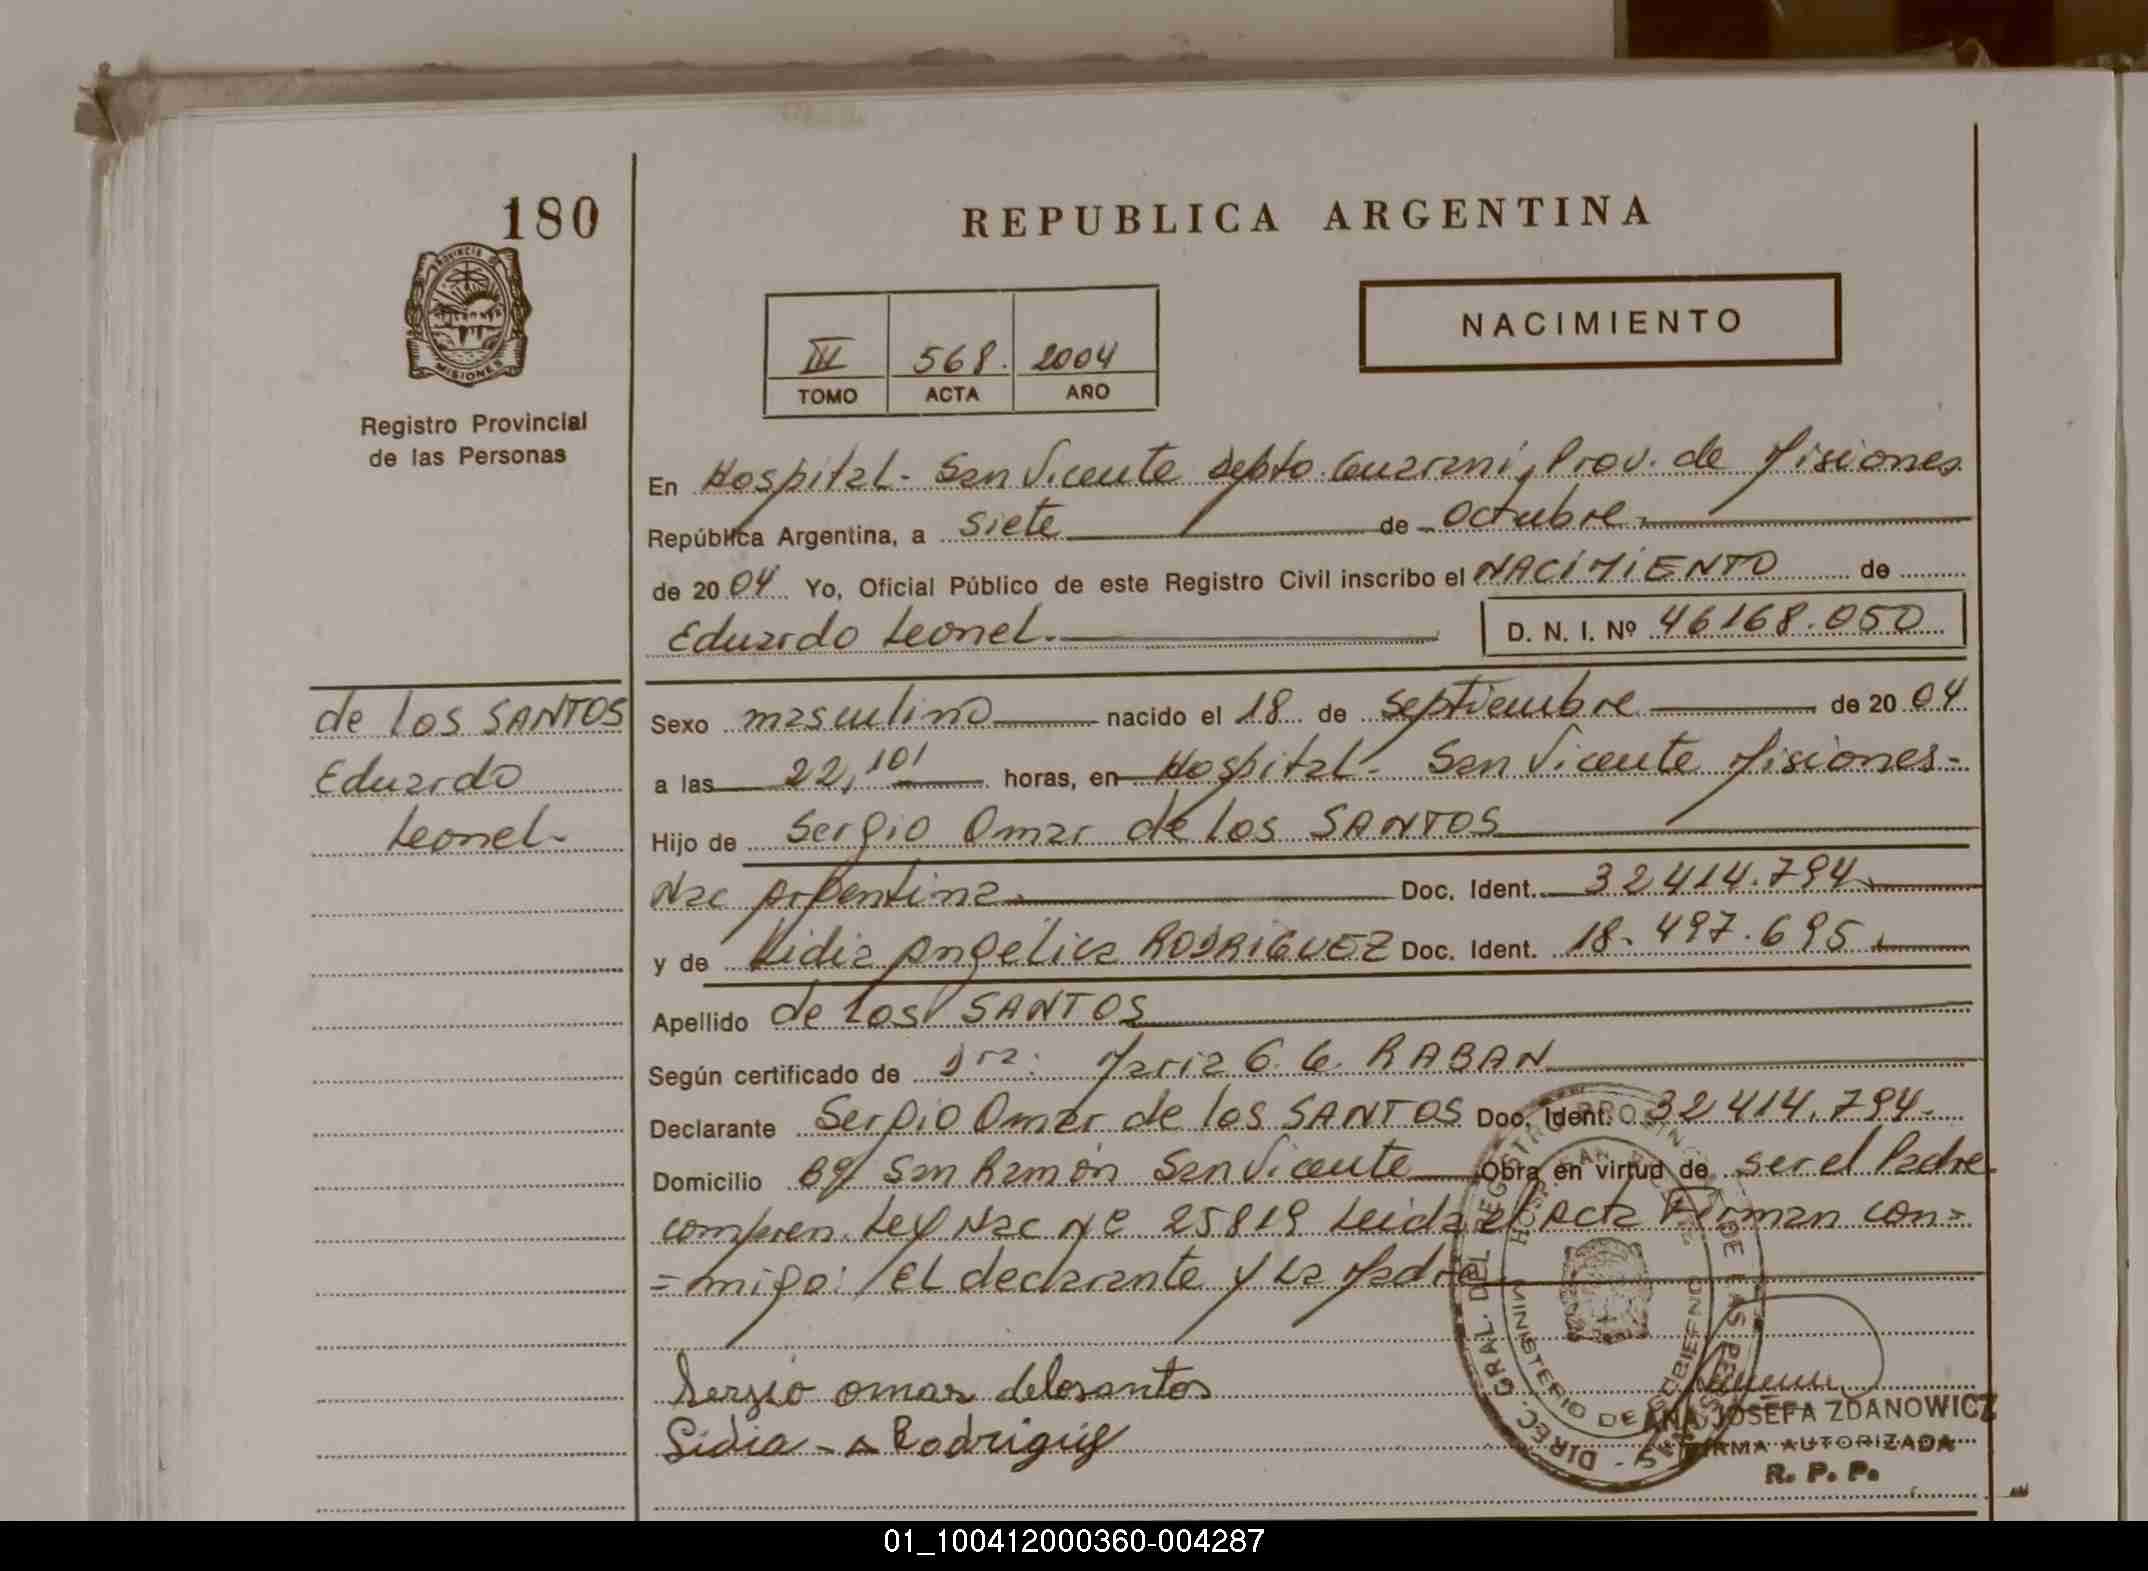 180
REPUBLICA ARGENTINA
PROVINCIA DE
MISIONES
NACIMIENTO
III 568. 2004
TOMO ACTA AÑO
Registro Provincial
de las Personas
En Hospital - San Vicente Depto. Guarani, Prov. de Misiones
República Argentina, a siete de octubre.
de 2004 Yo, Oficial Público de este Registro Civil inscribo el NACIMIENTO de
Eduardo Leonel. D. N. I. Nº 46168.050
de los SANTOS
Eduardo
Leonel-
Sexo masculino nacido el 18 de septiembre de 2004
a las 22,10' horas, en Hospital - San Vicente Misiones-
Hijo de Sergio Omar de los SANTOS
Nac Argentina. Doc. Ident. 32414.794.
y de Lidia Angélica RODRIGUEZ Doc. Ident. 18.497.695.
Apellido de los SANTOS
Según certificado de Dra: Maria G. G. RABAN
Declarante Sergio Omar de los SANTOS Doc. Ident. 32414.794.
Domicilio Bº San Ramón San Vicente Obra en virtud de ser el Padre
compren. Ley Nac Nº 25819 Leida el Acta Firman con=
=migo: El declarante y La Madre
Sergio omar delosantos
Lidia - A Rodriguez
DIREC. GRAL. DEL REGISTRO PROVINCIAL DE LAS PERSONAS -
MINISTERIO DE GOBIERNO
ANA JOSEFA ZDANOWICZ
FIRMA AUTORIZADA
R. P. P.
01_100412000360-004287